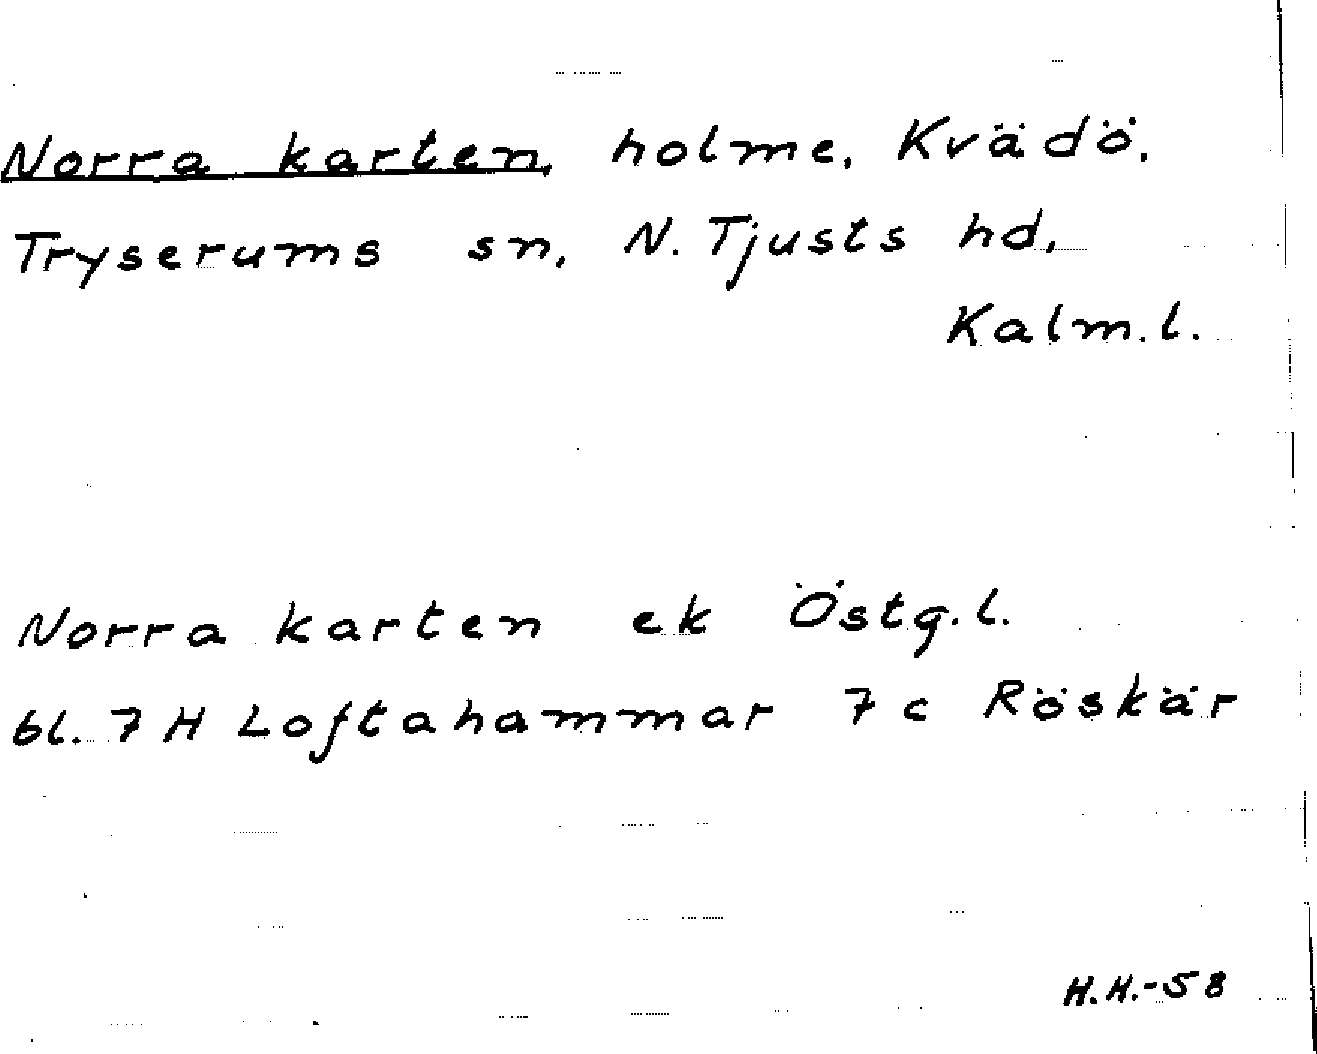 Norra karten, holme, Kvädö,
Tryserums sn, N. Tjusts hd,
Kalm.l.
Norra karten ek Östg.l.
bl. 7 H Loftahammar 7 c Röskär
H.H.-58